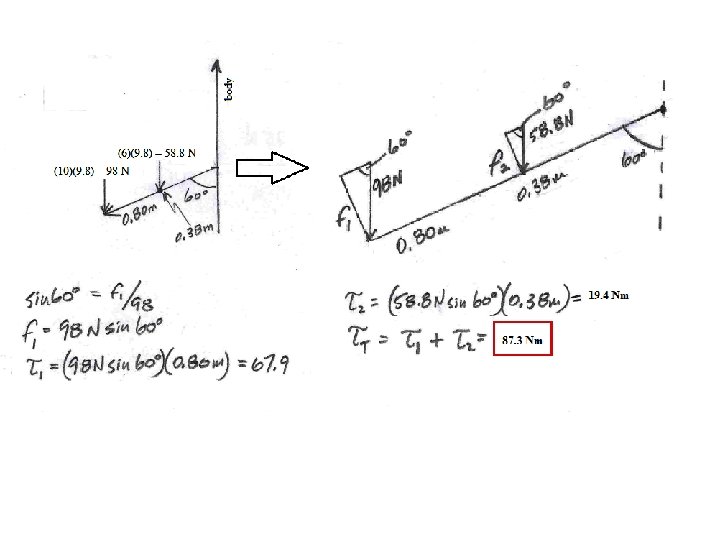 body
(6)(9.8) – 58.8 N
(10)(9.8) 98 N
60°
0.80m
0.38m
60°
58.8N
60°
f2
98N
60°
0.38m
f1
0.80m
sin60° = f1/98
f1 = 98N sin60°
τ1 = (98N sin60°)(0.80m) = 67.9
τ2 = (58.8N sin60°)(0.38m) = 19.4 Nm
τT = τ1 + τ2 = 87.3 Nm